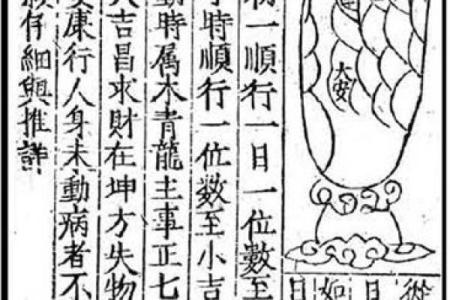 大安
從
日
如
日
初一順行一日一位數至
時順行一位數至小吉
動時属木青龍主事正七
吉昌求財在坤方失物
康行人身未動病者不
仔細與推詳